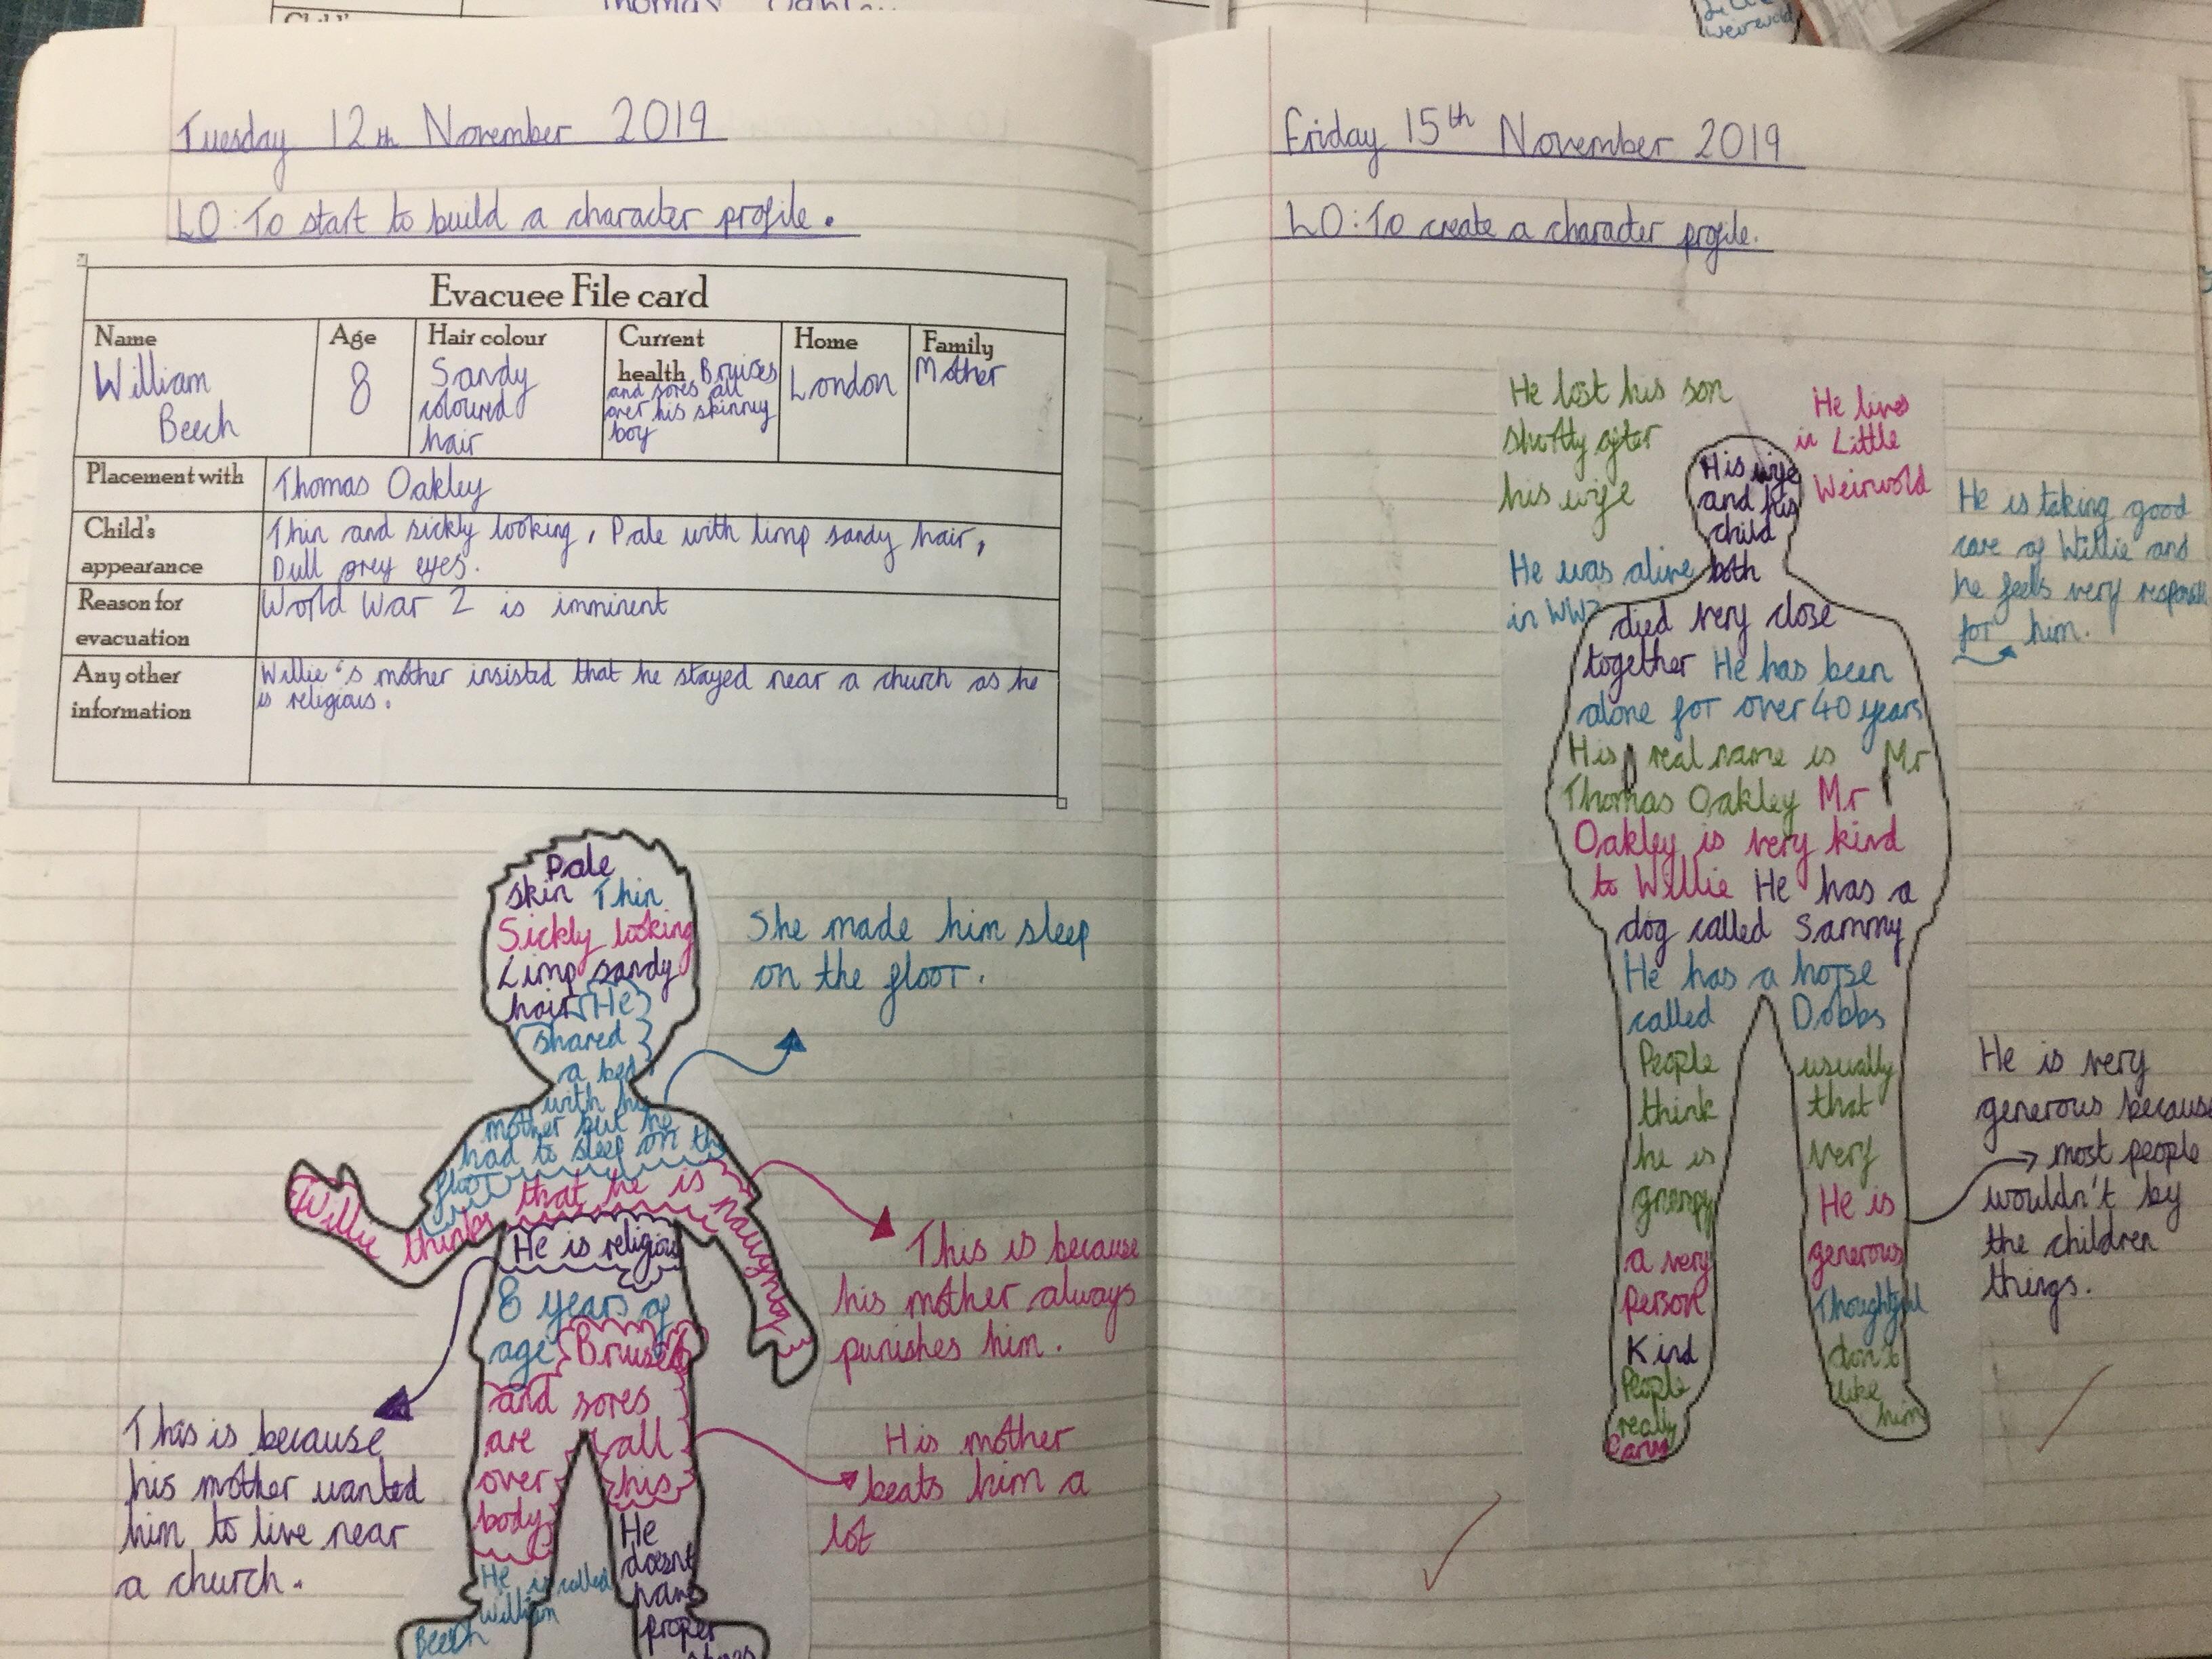 Thomas Oakley
Child's
Weirwold
Tuesday 12th November 2019
LO: To start to build a character profile.
Evacuee File card
Name
William
Beech
Age
8
Hair colour
Sandy
coloured
hair
Current
health Bruises
and sores all
over his skinney
boy
Home
London
Family
Mother
Placement with
Thomas Oakley
Child's
appearance
Thin and sickly looking, Pale with limp sandy hair,
Dull grey eyes.
Reason for
evacuation
World War 2 is imminent
Any other
information
Willie's mother insisted that he stayed near a church as he
is religious.
Pale
skin Thin
Sickly looking
Limp sandy
hair He
shared
a bed
with his
mother but he
had to sleep on the
floor
Willie thinks that he is naughty
He is religious
8 years of
age Bruises
and sores
are all
over his
body
He is called
William
Beech
He
doesn't
have
proper
She made him sleep
on the floor.
This is because
his mother always
punishes him.
His mother
beats him a
lot
This is because
his mother wanted
him to live near
a church.
Friday 15th November 2019
LO: To create a character profile.
He lost his son
shortly after
his wife
He lives
in Little
Weirwold
He was alive
in WW2
He is taking good
care of Willie and
he feels very
for him.
His wife
and his
child
both
died very close
together He has been
alone for over 40 years
His real name is Mr
Thomas Oakley Mr
Oakley is very kind
to Willie He has a
dog called Sammy
He has a horse
called Dobbs
People usually
think that
he is very
grumpy He is
a very generous
person Thoughtful
Kind don't
People like
really him
Caring
He is very
generous because
most people
wouldn't by
the children
things.